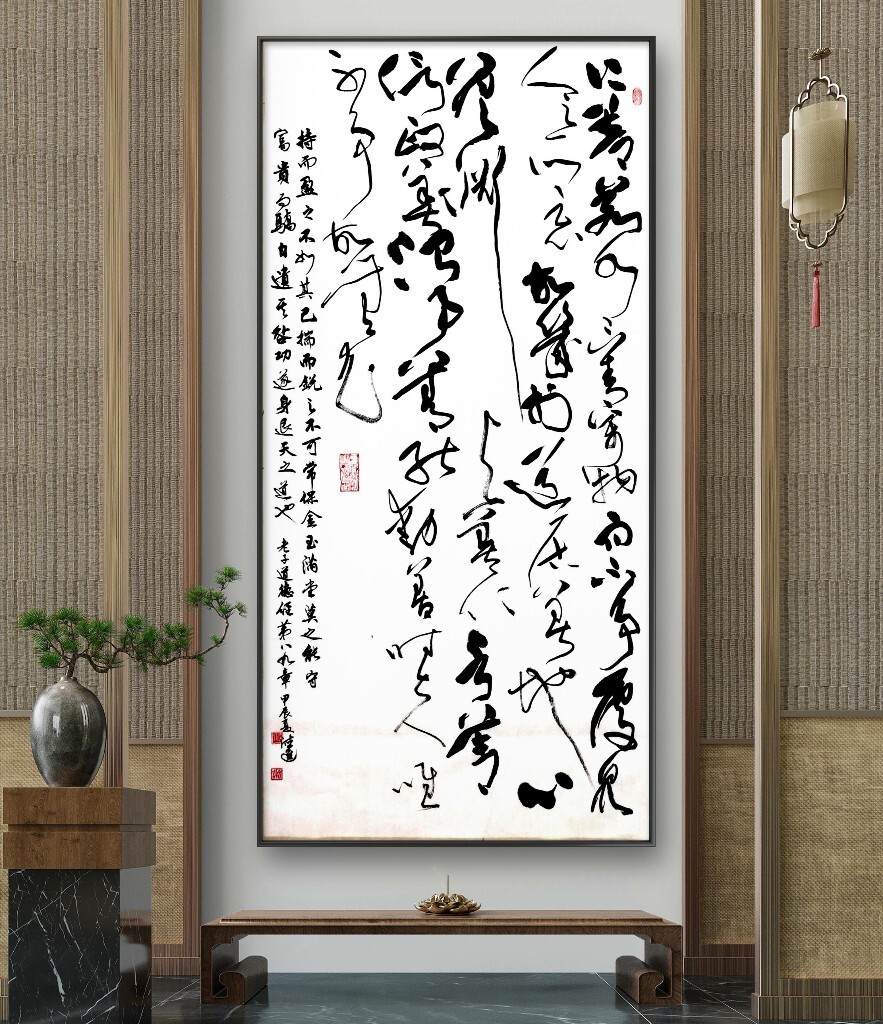 上善若水水善利萬物而不爭處眾
人之所惡故幾於道居善地心
善淵與善仁言善
信政善治事善能動善時夫唯
不爭故無尤
持而盈之不如其已揣而銳之不可常保金玉滿堂莫之能守
富貴而驕自遺其咎功遂身退天之道也 老子道德經第八九章 甲辰夏